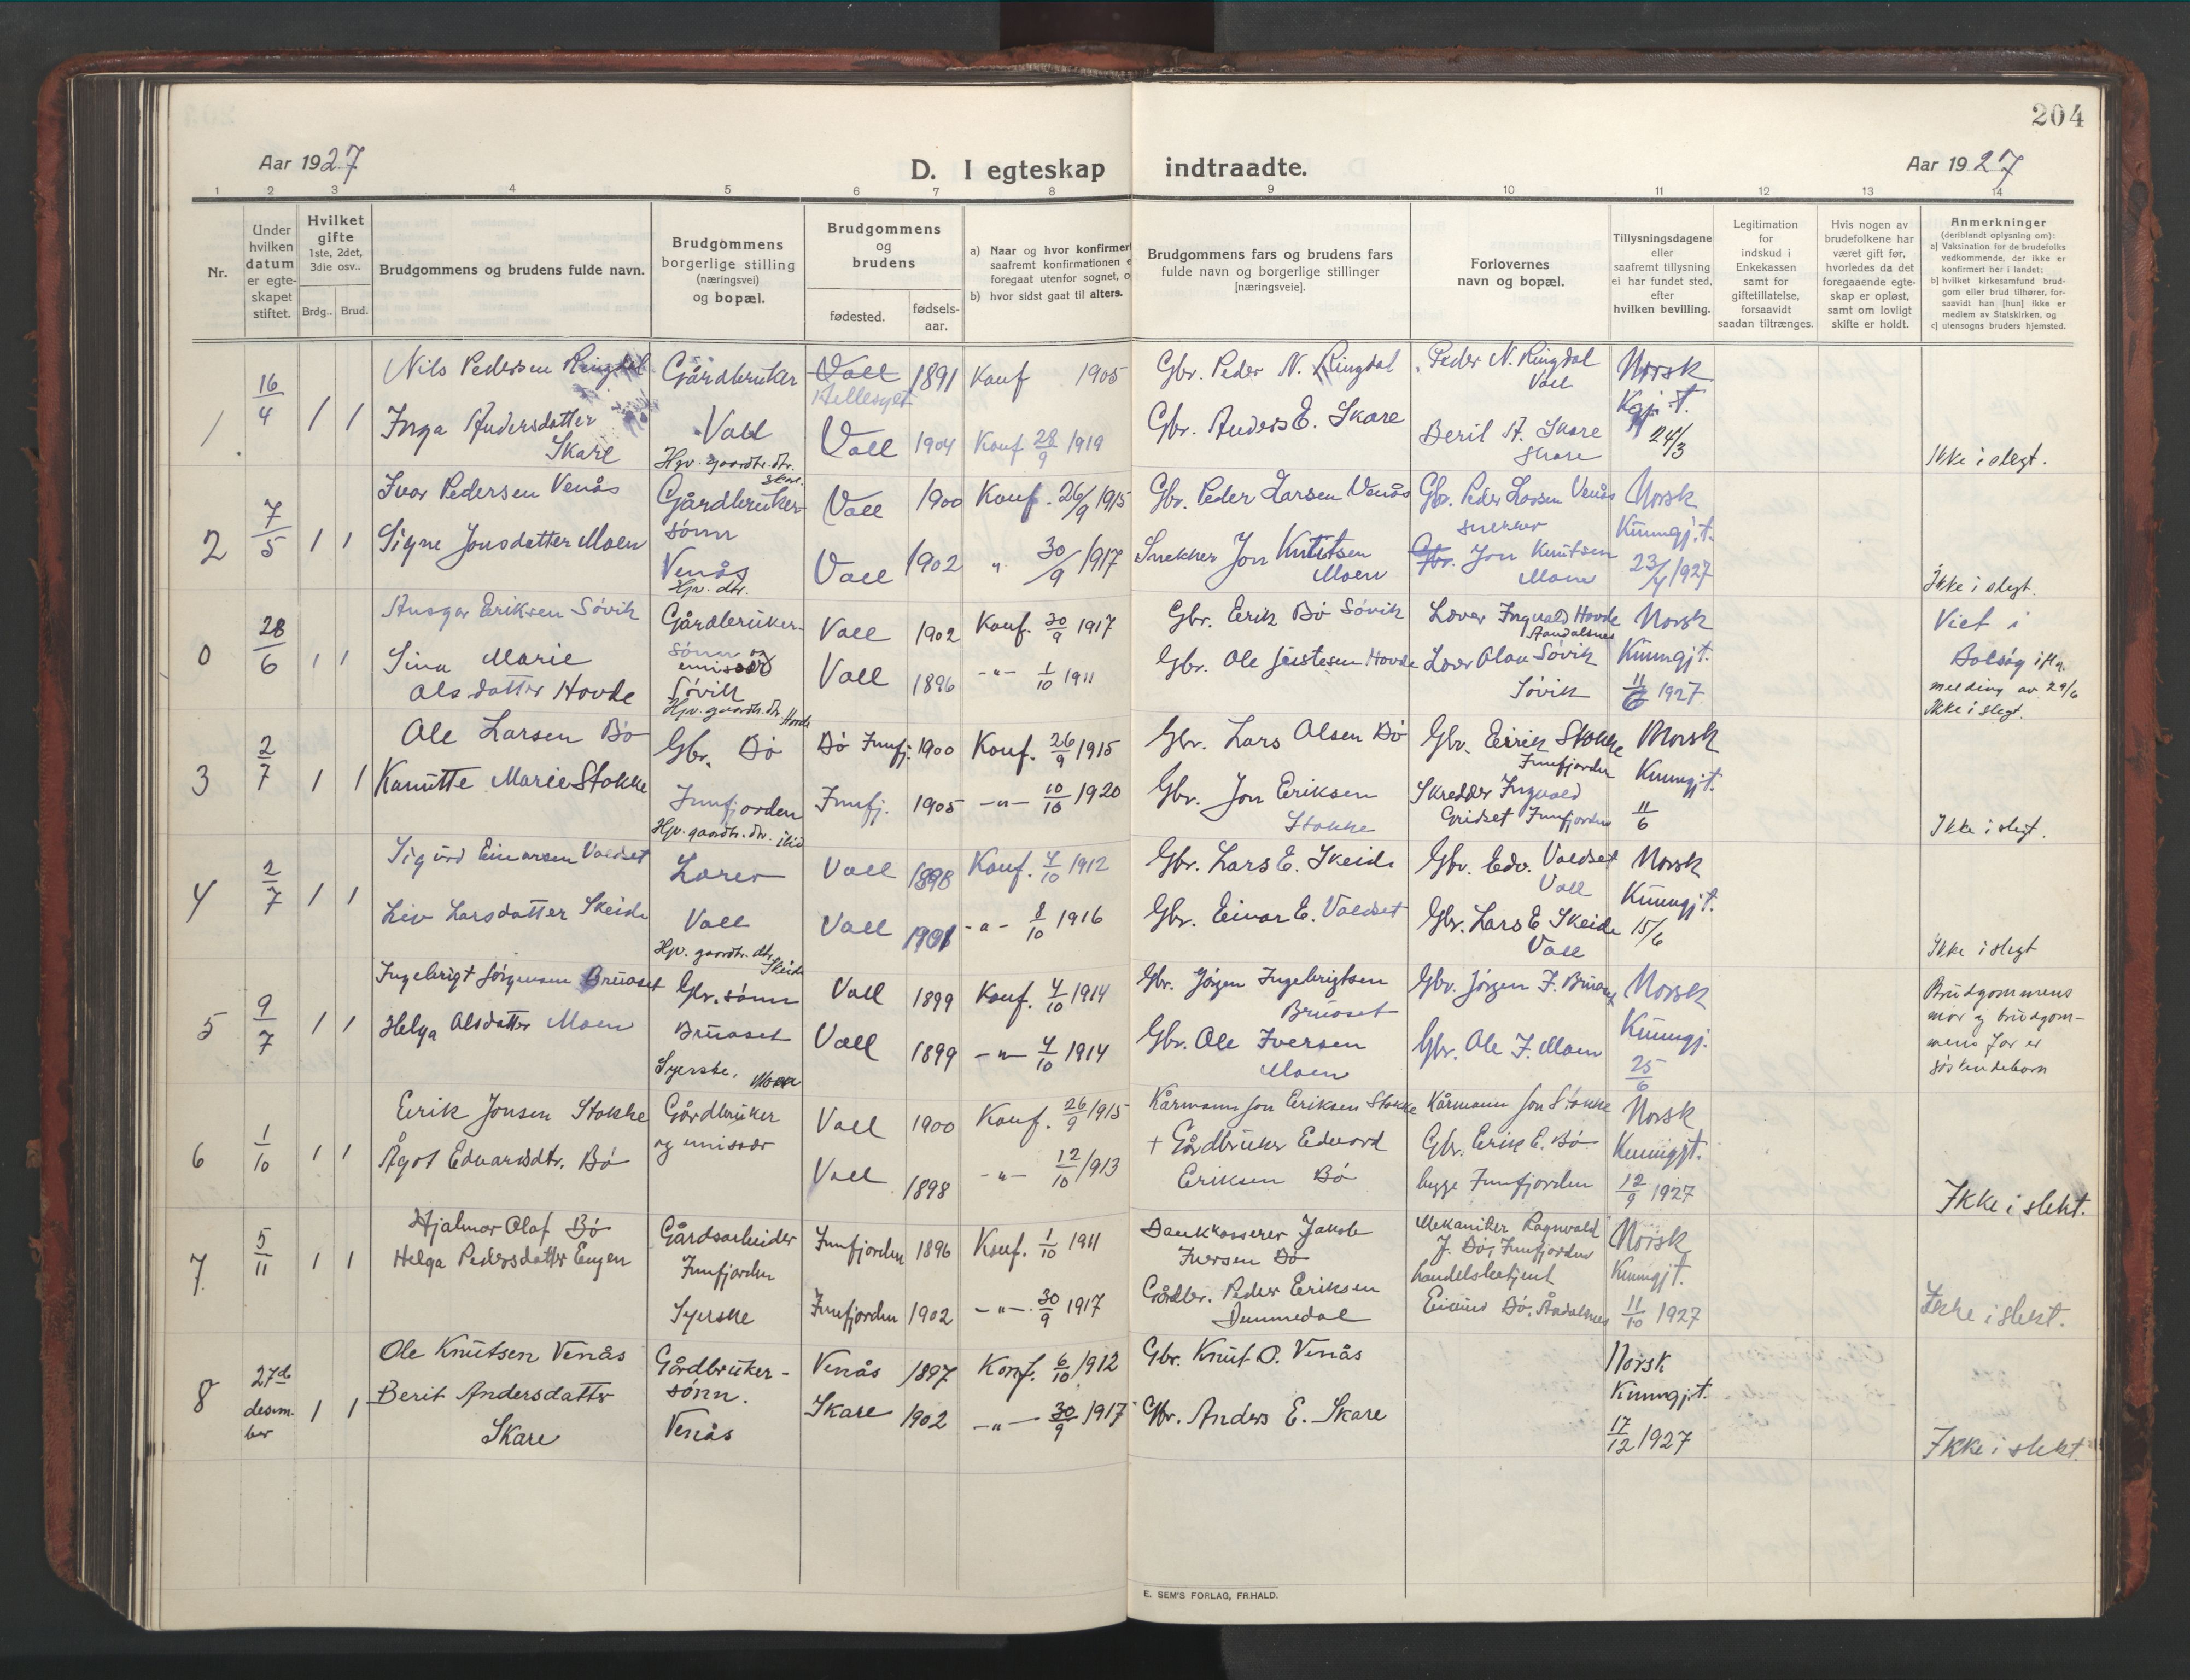 204
Aar 1927
D. I egteskap indtraadte.
Aar 1927
1 2 3 4 5 6 7 8 9 10 11 12 13 14
Nr.
Under
hvilken
datum
er egte-
skapet
stiftet.
Hvilket
gifte
1ste, 2det,
3die osv..
Brdg.. Brud.
Brudgommens og brudens fulde navn.
Brudgommens
borgerlige stilling
(næringsvei)
og bopæl.
Brudgommens
og
brudens
fødested.
fødsels-
aar.
a) Naar og hvor konfirmer
saafremt konfirmationen e
foregaat utenfor sognet, o
b) hvor sidst gaat til alters.
Brudgommens fars og brudens fars
fulde navn og borgerlige stillinger
[næringsveie].
Forlovernes
navn og bopæl.
Tillysningsdagene
eller
saafremt tillysning
ei har fundet sted,
efter
hvilken bevilling.
Legitimation
for
indskud i
Enkekassen
samt for
giftetillatelse,
forsaavidt
saadan tiltrænges.
Hvis nogen av
brudefolkene har
været gift før,
hvorledes da det
foregaaende egte-
skap er opløst,
samt om lovligt
skifte er holdt.
Anmerkninger
(deriblandt oplysning om):
a) Vaksination for de brudefolks
vedkommende, der ikke er
konfirmert her i landet;
b) hvilket kirkesamfund brud-
gom eller brud tilhører, for-
saavidt han [hun] ikke er
medlem av Statskirken, og
c) utensogns bruders hjemsted.
1
16/4
1 1
Nils Pedersen Ringdal
Inga Andersdatter
Skare
Gårdbruker
Voll
Hjv. gaardbr. dtr.
Skare
Voll
Hellesylt
1891
Konf 1905
Voll 1904 Konf 28/9 1919
Gbr. Peder N. Ringdal
Gbr. Anders E. Skare
Peder N. Ringdal
Voll
Berit A. Skare
Skare
Norsk
Kgj.t.
24/3
Ikke i slegt.
2
7/5
1 1
Ivar Pedersen Venås
Signe Jonsdatter Moen
Gårdbruker-
sønn
Venås
Hjv. dtr.
Voll 1900 Konf. 26/9 1915
Voll 1902 " 30/9 1917
Gbr. Peder Larsen Venås
Snekker Jon Knutsen
Moen
Gbr. Peder Larsen Venås
snekker
Gbr. Jon Knutsen
Moen
Norsk
Kunngj.t.
23/4 1927
Ikke i slegt.
0
28/6
1 1
Ansgar Eriksen Søvik
Sina Marie
Olsdatter Hovde
Gårdbruker-
sønn og
emissær
Søvik
Hjv. gaardbr. dtr. Hovde
Voll 1902 Konf. 30/9 1917
Voll 1896 -"- 1/10 1911
Gbr. Erik Bø Søvik
Gbr. Ole Jostesen Hovde
Lærer Ingvald Hovde
Aandalsnes
Lærer Olav Søvik
Søvik
Norsk
Kunngjt.
11/6 1927
Viet i
Bolsøy iflg.
melding av 29/6
Ikke i slegt.
3
2/7
1 1
Ole Larsen Bø
Kanutte Marie Stokke
Gbr. Bø
Innfjorden
Hjv. gaardbr. dtr. ibid
Bø Innfj. 1900 Konf. 26/9 1915
Innfj. 1905 -"- 10/10 1920
Gbr. Lars Olsen Bø
Gbr. Jon Eriksen
Stokke
Gbr. Eirik Stokke
Innfjorden
Skredder Ingvald
Gridset Innfjorden
Norsk
Kunngjt.
11/6
Ikke i slegt.
4
2/7
1 1
Sigurd Einarsen Voldset
Liv Larsdatter Skeide
Lærer
Voll
Hjv. gaardbr. dtr.
Skeide
Voll 1898 Konf. 7/10 1912
Voll 1901 -"- 8/10 1916
Gbr. Lars E. Skeide
Gbr. Einar E. Voldset
Gbr. Edv. Voldset
Voll
Gbr. Lars E Skeide
Voll
Norsk
Kunngjt.
15/6
Ikke i slegt
5
9/7
1 1
Ingebrigt Jørgensen Bruaset
Helga Olsdatter Moen
Gbr. sønn
Bruaset
Syerske, Moen
Voll 1899 Konf. 4/10 1914
Voll 1899 -"- 4/10 1914
Gbr. Jørgen Ingebrigtsen
Bruaset
Gbr. Ole Iversen
Moen
Gbr. Jørgen I. Bruaset
Gbr. Ole I. Moen
Norsk
Kunngj.
25/6
Brudgommens
mor og brudgom-
mens far er
søskendebarn
6
1/10
1 1
Eirik Jonsen Stokke
Ågot Edvardsdtr. Bø
Gårdbruker
og emissær
Voll 1900 Konf. 26/9 1915
Voll 1898 -"- 12/10 1913
Kårmann Jon Eriksen Stokke
+ Gårdbruker Edvard
Eriksen Bø
Kårmann Jon Stokke
Gbr. Erik E. Bø
begge Innfjorden
Norsk
Kunngjt.
12/9 1927
Ikke i slekt.
7
5/11
1 1
Hjalmar Olaf Bø
Helga Pedersdatter Engen
Gårdsarbeider
Innfjorden
Syerske
Innfjorden 1896 Konf. 1/10 1911
Innfjorden 1902 -"- 30/9 1917
Bankkasserer Jakob
Iversen Bø
Gårdbr. Peder Eriksen
Mekaniker Ragnvald
J. Bø, Innfjorden
handelsbetjent
Eivind Bø, Åndalsnes
Norsk
Kunngjt.
11/10 1927
Ikke i slekt.
8
27de
desem-
ber
1 1
Ole Knutsen Venås
Berit Andersdatter
Skare
Gårdbruker-
sønn.
Venås
Venås 1897 Konf. 6/10 1912
Skare 1902 -"- 30/9 1917
Gbr. Knut O. Venås
Gbr. Anders E. Skare
Norsk
Kunngjt.
17/12 1927
Ikke i slekt.
E. SEM'S FORLAG, FR.HALD.